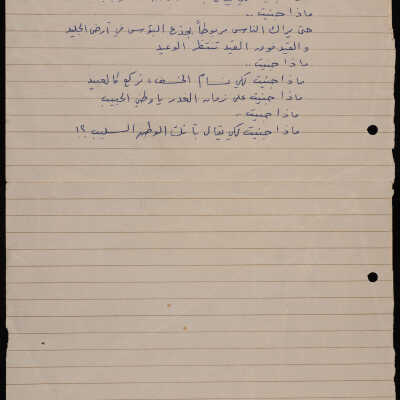 ماذا جنيت ..
حتى يراك الناس مربوطاً بجذع البؤس في أرض الجليد
والقيد فوق القيد تنتظر الوعيد
ماذا جنيت ..
ماذا جنيت لكي تركع كالعبيد
ماذا جنيت على زمان الغدر يا وطني الحبيب
ماذا جنيت ..
ماذا جنيت لكي يقال بأنك الوطن السليب ؟!